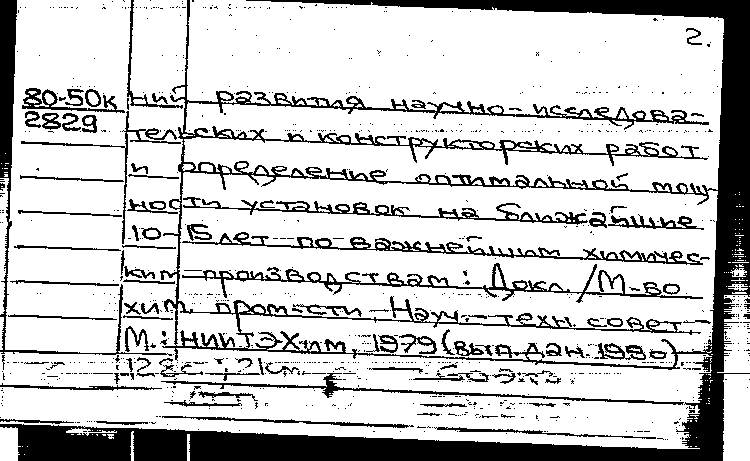 2.
80-50к ний развития научно-исследова-
2829 тельских и конструкторских работ
и определение оптимальной мощ-
ности установок на ближайшие
10-15 лет по важнейшим химичес-
ким производствам: Докл. / М-во
хим. пром-сти, Науч.-техн. совет. -
М.: НИИТЭХим, 1979 (вып. дан. 1980).
128с.; 21см.